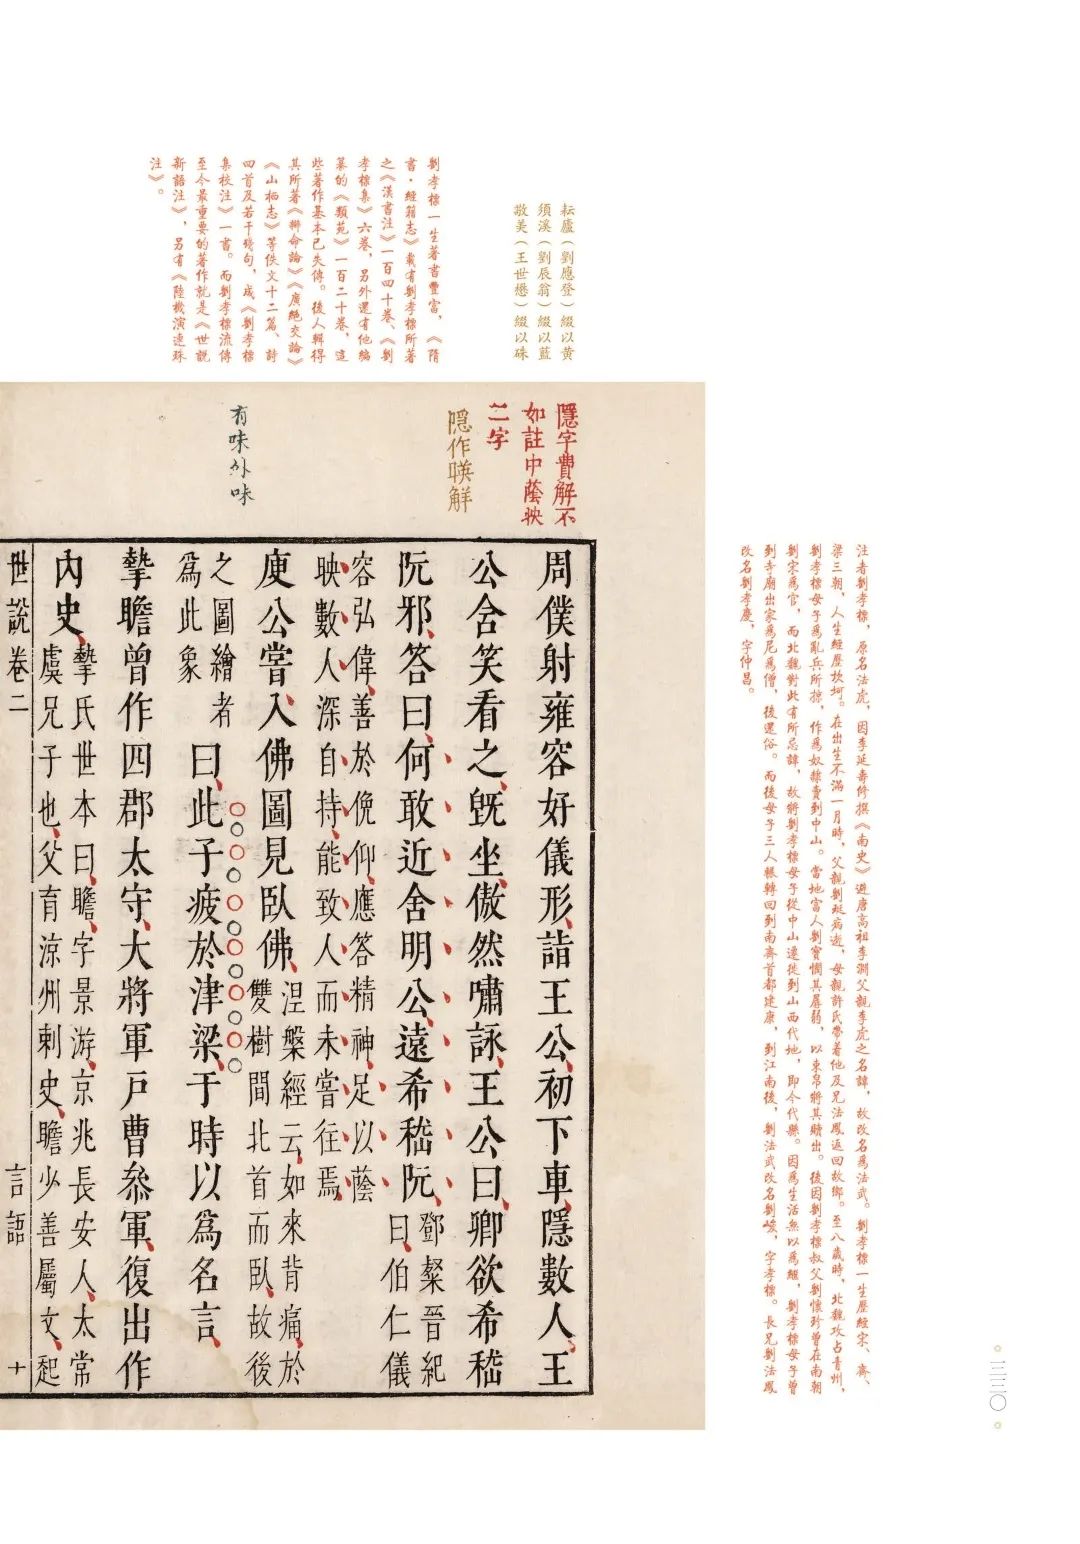 注者劉孝標，原名法虎，因李延壽修撰《南史》避唐高祖李淵父親李虎之名諱，故改名爲法武。劉孝標一生歷經宋、齊、
梁三朝，人生經歷坎坷。在出生不滿一月時，父親劉珽病逝，母親許氏帶着他及兄法鳳返回故鄉。至八歲時，北魏攻占青州，
劉孝標母子爲亂兵所掠，作爲奴隸賣到中山。當地富人劉寶憫其孱弱，以束帛將其贖出。後因劉孝標叔父劉懷珍曾在南朝
劉宋爲官，而北魏對此有所忌諱，故將劉孝標母子從中山遷徙到山西代地，即今代縣。因爲生活無以爲繼，劉孝標母子曾
到寺廟出家爲尼爲僧，後還俗。而後母子三人輾轉回到南齊首都建康，到江南後，劉法武改名劉峻，字孝標。長兄劉法鳳
改名劉孝慶，字仲昌。
耘廬（劉應登）綴以黃
須溪（劉辰翁）綴以藍
敬美（王世懋）綴以硃
劉孝標一生著書豐富，《隋
書·經籍志》載有劉孝標所著
之《漢書注》一百四十卷、《劉
孝標集》六卷，另外還有他編
纂的《類苑》一百二十卷，這
些著作基本已失傳。後人輯得
其所著《辯命論》《廣絕交論》
《山栖志》等佚文十二篇、詩
四首及若干殘句，成《劉孝標
集校注》一書。而劉孝標流傳
至今最重要的著作就是《世說
新語注》，另有《陸機演連珠
注》。
隱字費解不
如註中蔭映
二字
隱作暎解
有味外味
周僕射雍容好儀形、詣王公、初下車、隱數人、王
公含笑看之、旣坐、傲然嘯詠、王公曰、卿欲希嵇
阮邪、答曰、何敢近舍明公、遠希嵇阮、
鄧粲晉紀
曰、伯仁儀
容弘偉、善於俛仰、應答精神、足以蔭
映數人、深自持、能致人、而未嘗往焉、
庾公嘗入佛圖、見臥佛、
涅槃經云、如來背痛、於
雙樹間北首而臥、故後
之圖繪者
爲此象
曰、此子疲於津梁、于時以爲名言、
摯瞻曾作四郡太守、大將軍戶曹叅軍、復出作
內史、
摯氏世本曰、瞻、字景游、京兆長安人、太常
虞兄子也、父育涼州刺史、瞻少善屬文、起
世說卷二 言語 十
三三〇